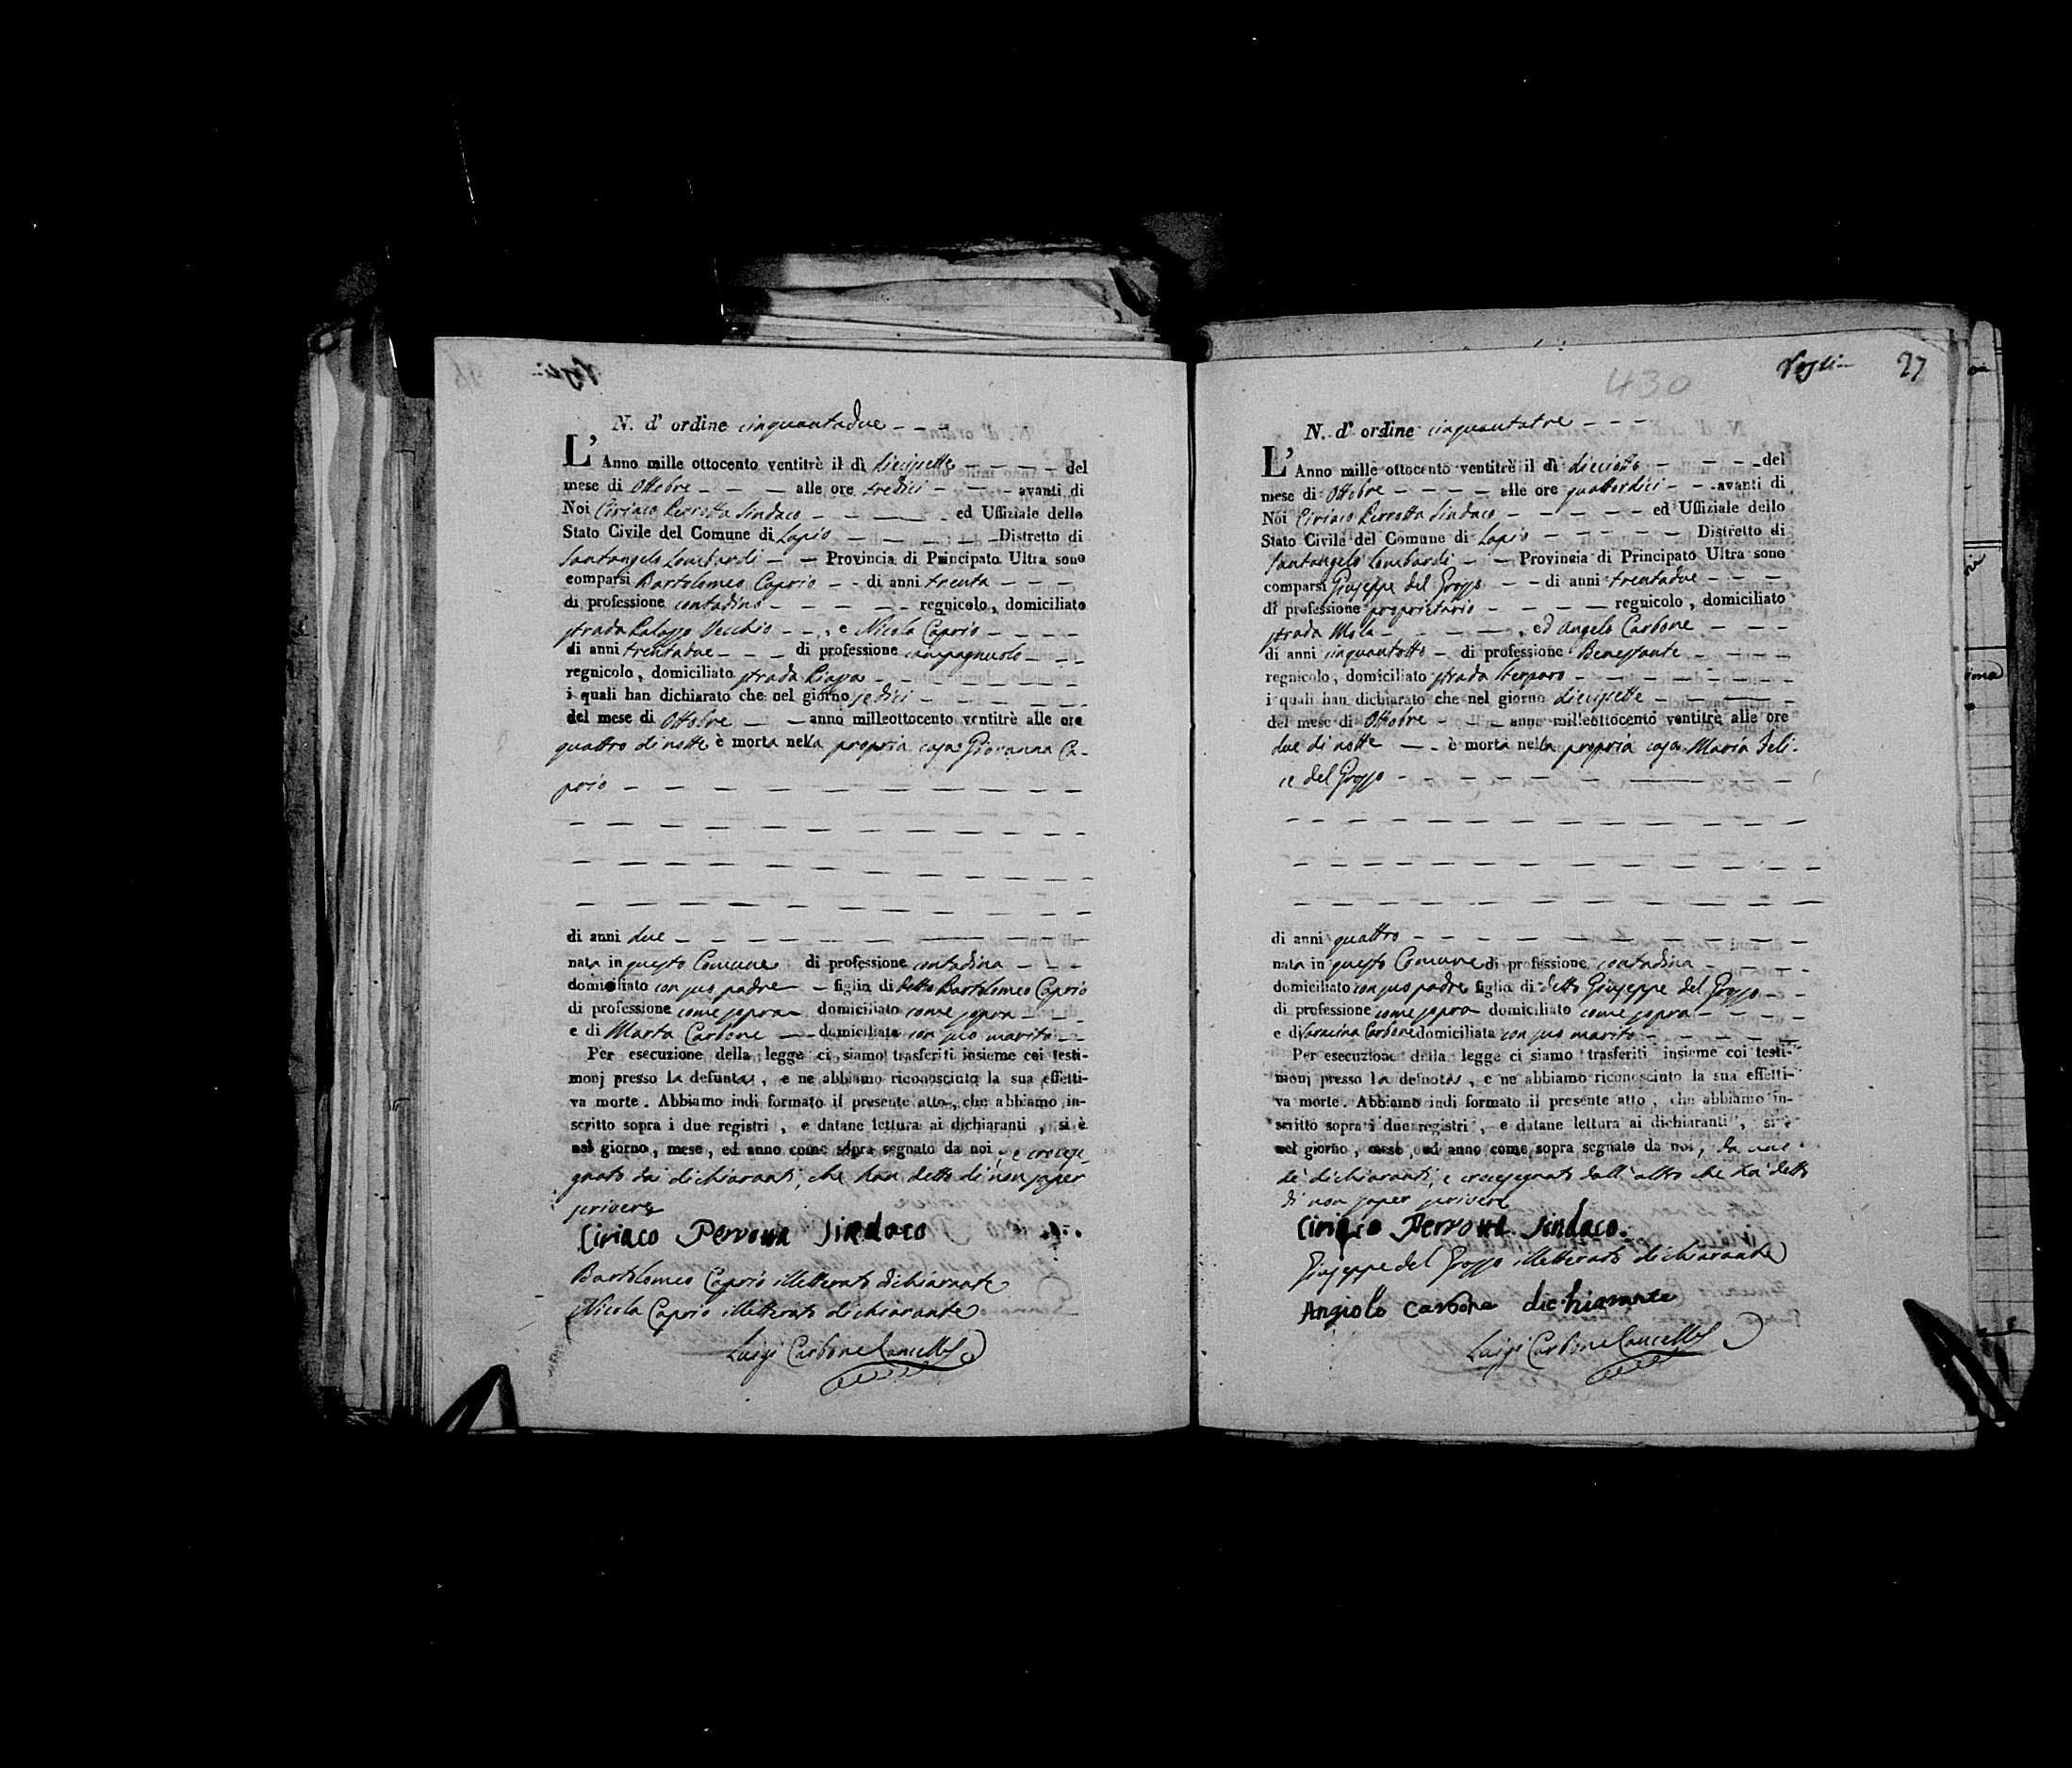 N. d' ordine cinquantadue
L' Anno mille ottocento ventitrè il dì diecisette del
mese di Ottobre alle ore tredici avanti di
Noi Ciriaco Perrotta Sindaco ed Uffiziale dello
Stato Civile del Comune di Lapio Distretto di
Santangelo Lombardi Provincia di Principato Ultra sono
comparsi Bartolomeo Caprio di anni trenta
di professione contadino regnicolo, domiciliato
strada Palazzo Vecchio, e Nicola Caprio
di anni trentadue di professione campagnuolo
regnicolo, domiciliato strada Piazza
i quali han dichiarato che nel giorno sedici
del mese di Ottobre anno milleottocento ventitrè alle ore
quattro di notte è morta nella propria casa Giovanna Ca-
prio
di anni due
nata in questo Comune di professione contadina
domiciliato con suo padre figlia di detto Bartolomeo Caprio
di professione come sopra domiciliato come sopra
e di Marta Carbone domiciliata con suo marito
Per esecuzione della legge ci siamo trasferiti insieme coi testi-
monj presso la defunta, e ne abbiamo riconosciuto la sua effetti-
va morte. Abbiamo indi formato il presente atto, che abbiamo in-
scritto sopra i due registri, e datane lettura ai dichiaranti, si è
nel giorno, mese, ed anno come sopra segnato da noi, e crocese-
gnato dai dichiaranti, che han detto di non saper
scrivere
Ciriaco Perrotta Sindaco
Bartolomeo Caprio illetterato dichiarante
Nicola Caprio illetterato dichiarante
Luigi Carbone Cancell
430
27
N. d' ordine cinquantatre
L' Anno mille ottocento ventitrè il dì dieciotto del
mese di Ottobre alle ore quattordici avanti di
Noi Ciriaco Perrotta Sindaco ed Uffiziale dello
Stato Civile del Comune di Lapio Distretto di
Santangelo Lombardi Provincia di Principato Ultra sono
comparsi Giuseppe del Grosso di anni trentadue
di professione proprietario regnicolo, domiciliato
strada Mola, ed Angelo Carbone
di anni cinquantotto di professione Benestante
regnicolo, domiciliato strada Sterparo
i quali han dichiarato che nel giorno diecisette
del mese di Ottobre anno milleottocento ventitrè alle ore
due di notte è morta nella propria casa Maria Feli-
ce del Grosso
di anni quattro
nata in questo Comune di professione contadina
domiciliato con suo padre figlia di detto Giuseppe del Grosso
di professione come sopra domiciliato come sopra
e di Saracina Carbone domiciliata con suo marito
Per esecuzione della legge ci siamo trasferiti insieme coi testi-
monj presso la defunta, e ne abbiamo riconosciuto la sua effetti-
va morte. Abbiamo indi formato il presente atto, che abbiamo in-
scritto sopra i due registri, e datane lettura ai dichiaranti, si è
nel giorno, mese, ed anno come sopra segnato da noi, da uno
de' dichiaranti, e crocesegnato dall' altro che ha detto
di non saper scrivere
Ciriaco Perrotta Sindaco
Giuseppe del Grosso illetterato dichiarante
Angiolo Carbone dichiarante
Luigi Carbone Cancell